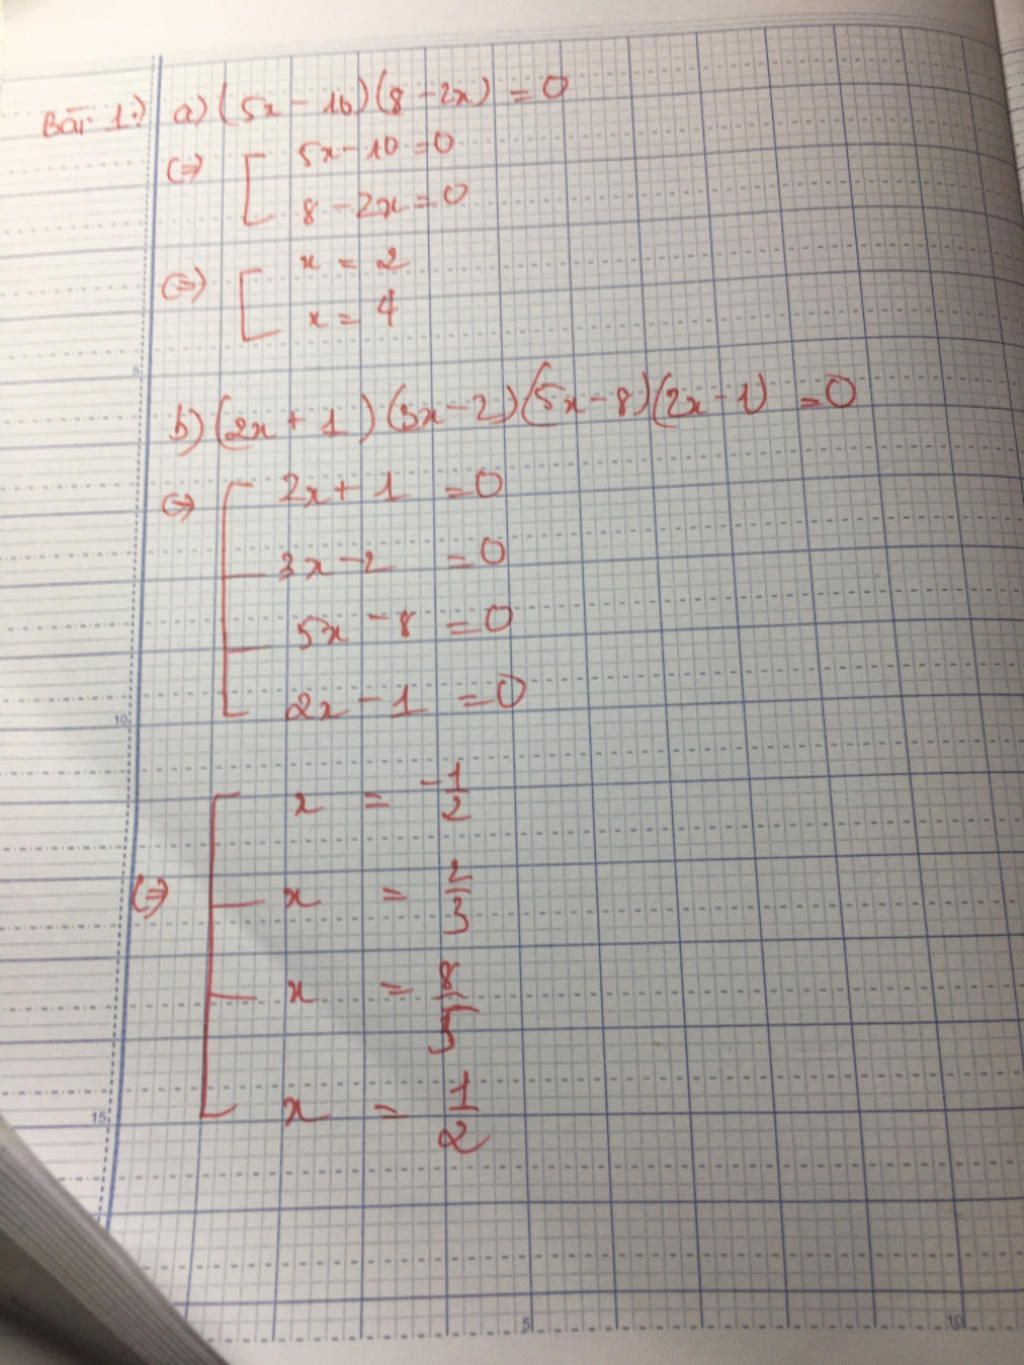 Bài 1:) a) (5x - 10)(8 - 2x) = 0
(=) [ 5x - 10 = 0
8 - 2x = 0
(=) [ x = 2
x = 4
5
b) (2x + 1)(3x - 2)(5x - 8)(2x - 1) = 0
(=) [ 2x + 1 = 0
3x - 2 = 0
5x - 8 = 0
2x - 1 = 0
10
x = -1/2
(=) [ x = 2/3
x = 8/5
x = 1/2
15
5 10